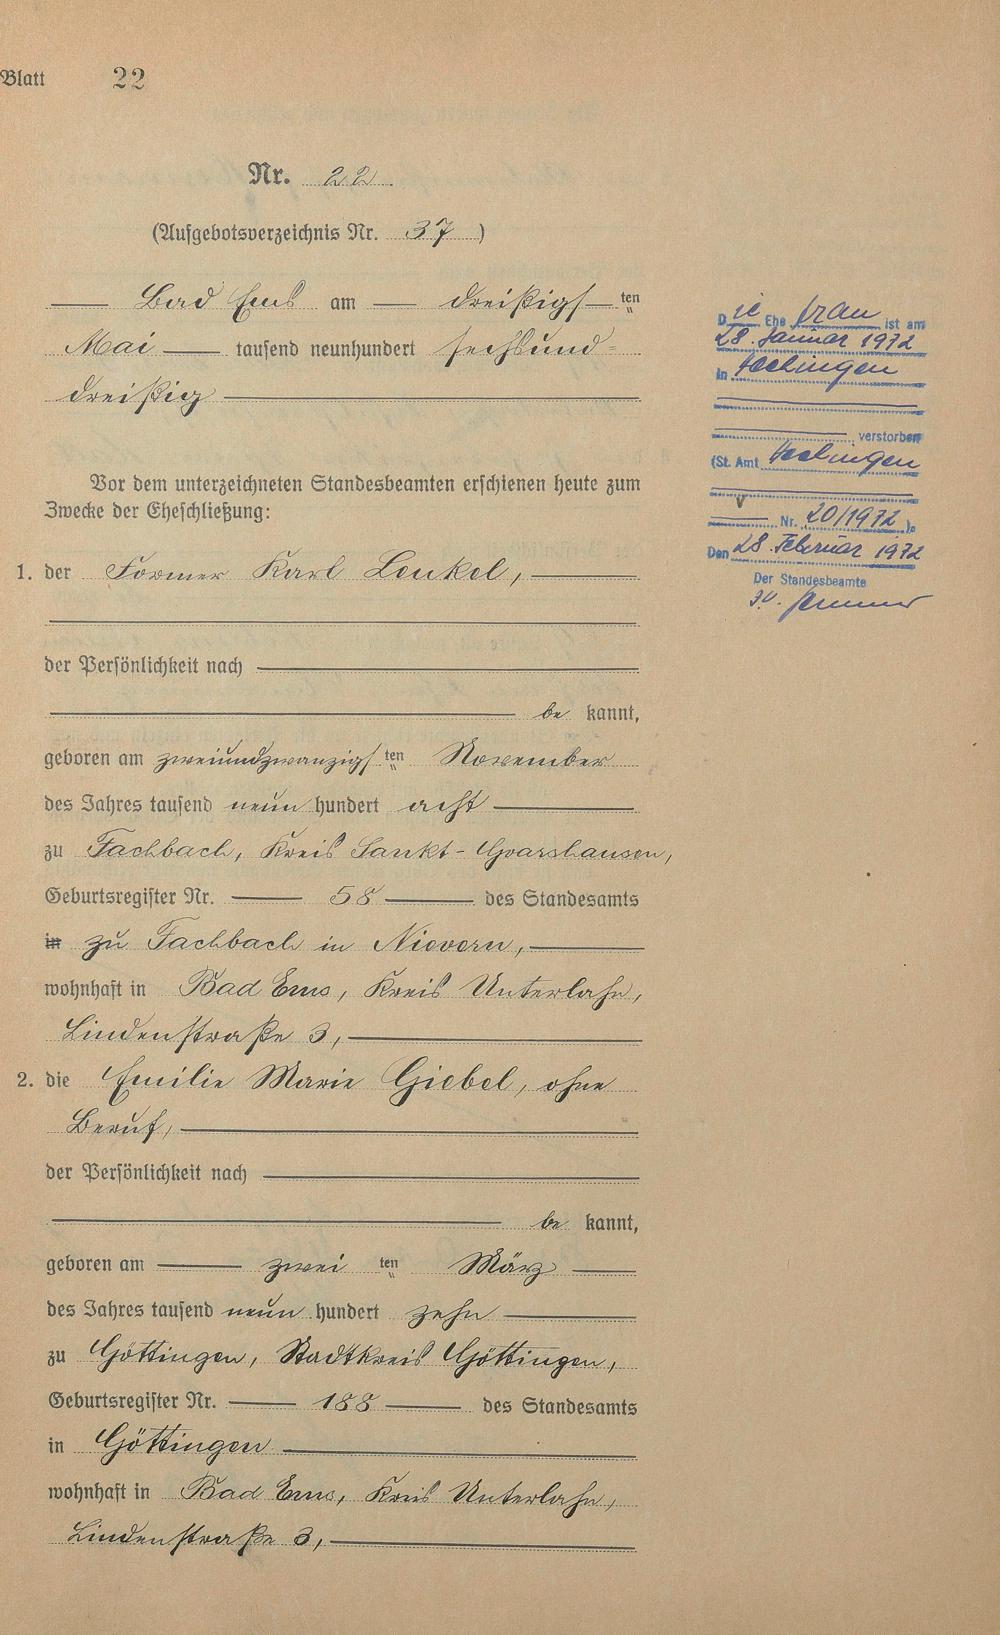 Blatt 22
Nr. 22.
(Aufgebotsverzeichnis Nr. 37 )
Bad Ems am dreißigsten
Mai tausend neunhundert sechsund=
dreißig
Vor dem unterzeichneten Standesbeamten erschienen heute zum
Zwecke der Eheschließung:
1. der Former Karl Lenkel,
der Persönlichkeit nach
be kannt,
geboren am zweiundzwanzigsten November
des Jahres tausend neun hundert acht
zu Fachbach, Kreis Sankt-Goarshausen,
Geburtsregister Nr. 58 des Standesamts
in zu Fachbach in Nievern,
wohnhaft in Bad Ems, Kreis Unterlahn,
Lindenstraße 3,
2. die Emilie Marie Giebel, ohne
Beruf,
der Persönlichkeit nach
be kannt,
geboren am zweiten März
des Jahres tausend neun hundert zehn
zu Göttingen, Stadtkreis Göttingen,
Geburtsregister Nr. 188 des Standesamts
in Göttingen
wohnhaft in Bad Ems, Kreis Unterlahn,
Lindenstraße 3,
Die Ehefrau ist am
28. Januar 1972
in Hechingen
verstorben
(St. Amt Hechingen
Nr. 20/1972 ).
Den 28. Februar 1972
Der Standesbeamte